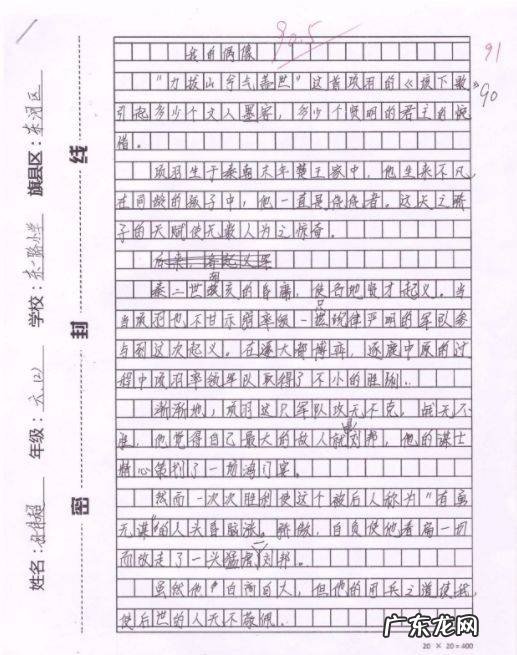 90.5
91
90
我的偶像
"力拔山兮气盖世"这首项羽的《垓下歌》
引起多少个文人墨客,多少个贤明的君主的惋
惜。
项羽生于秦朝末年楚王家中,他生来不凡,
在同龄的孩子中,他一直是佼佼者。这天之骄
子的天赋使无数人为之惊奇。
后来,
秦二世胡亥的自傲,使各地贤才起义。当
当项羽也不甘示弱率领一只纪律严明的军队参
与到这次起义。在逐大部博弈,逐鹿中原的过
程中项羽率领军队取得了不小的胜利。
渐渐地,项羽这只军队攻无不克,战无不
胜,他觉得自己最大的敌人就是刘邦,他的谋士
精心策划了一场鸿门宴。
然而一次次胜利使这个被后人称为"有勇
无谋"的人头昏脑涨。骄傲,自负使他看扁一切
而放走了一头猛虎——刘邦。
虽然他自高自大,但他的用兵之道
使后世的人无不敬佩。
20 × 20 = 400
线
封
密
旗县区:东河区
学校:东一路小学
年级:六(2)
姓名:
广东龙网